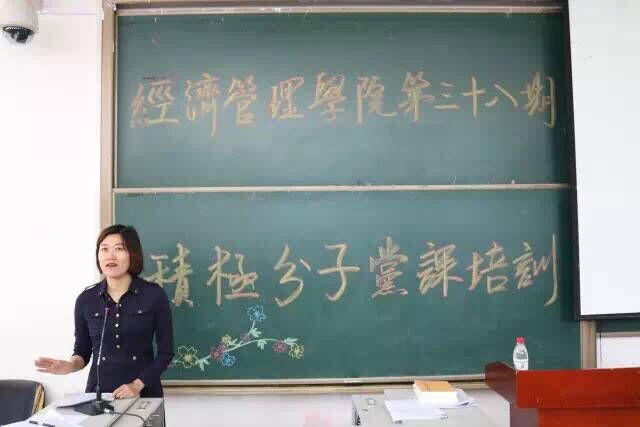 經濟管理學院第三十八期
積極分子黨課培訓